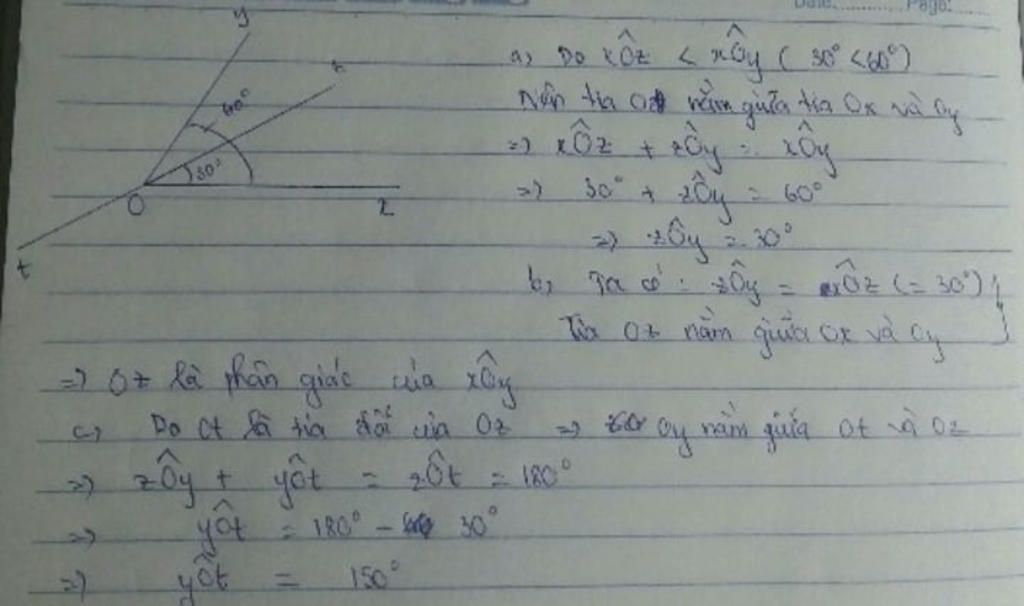 Date: Page:
y
60°
30°
O
t
a) Do xÔz < xÔy ( 30° < 60° )
Nên tia Oz nằm giữa tia Ox và Oy
=> xÔz + zÔy = xÔy
=> 30° + zÔy = 60°
=> zÔy = 30°
b, Ta có : zÔy = xÔz (= 30°) }
Tia Oz nằm giữa Ox và Oy
=> Oz là phân giác của xÔy
c, Do Ot là tia đối của Oz => Oy nằm giữa Ot và Oz
=> zÔy + yÔt = zÔt = 180°
=> yÔt = 180° - 30°
=> yÔt = 150°